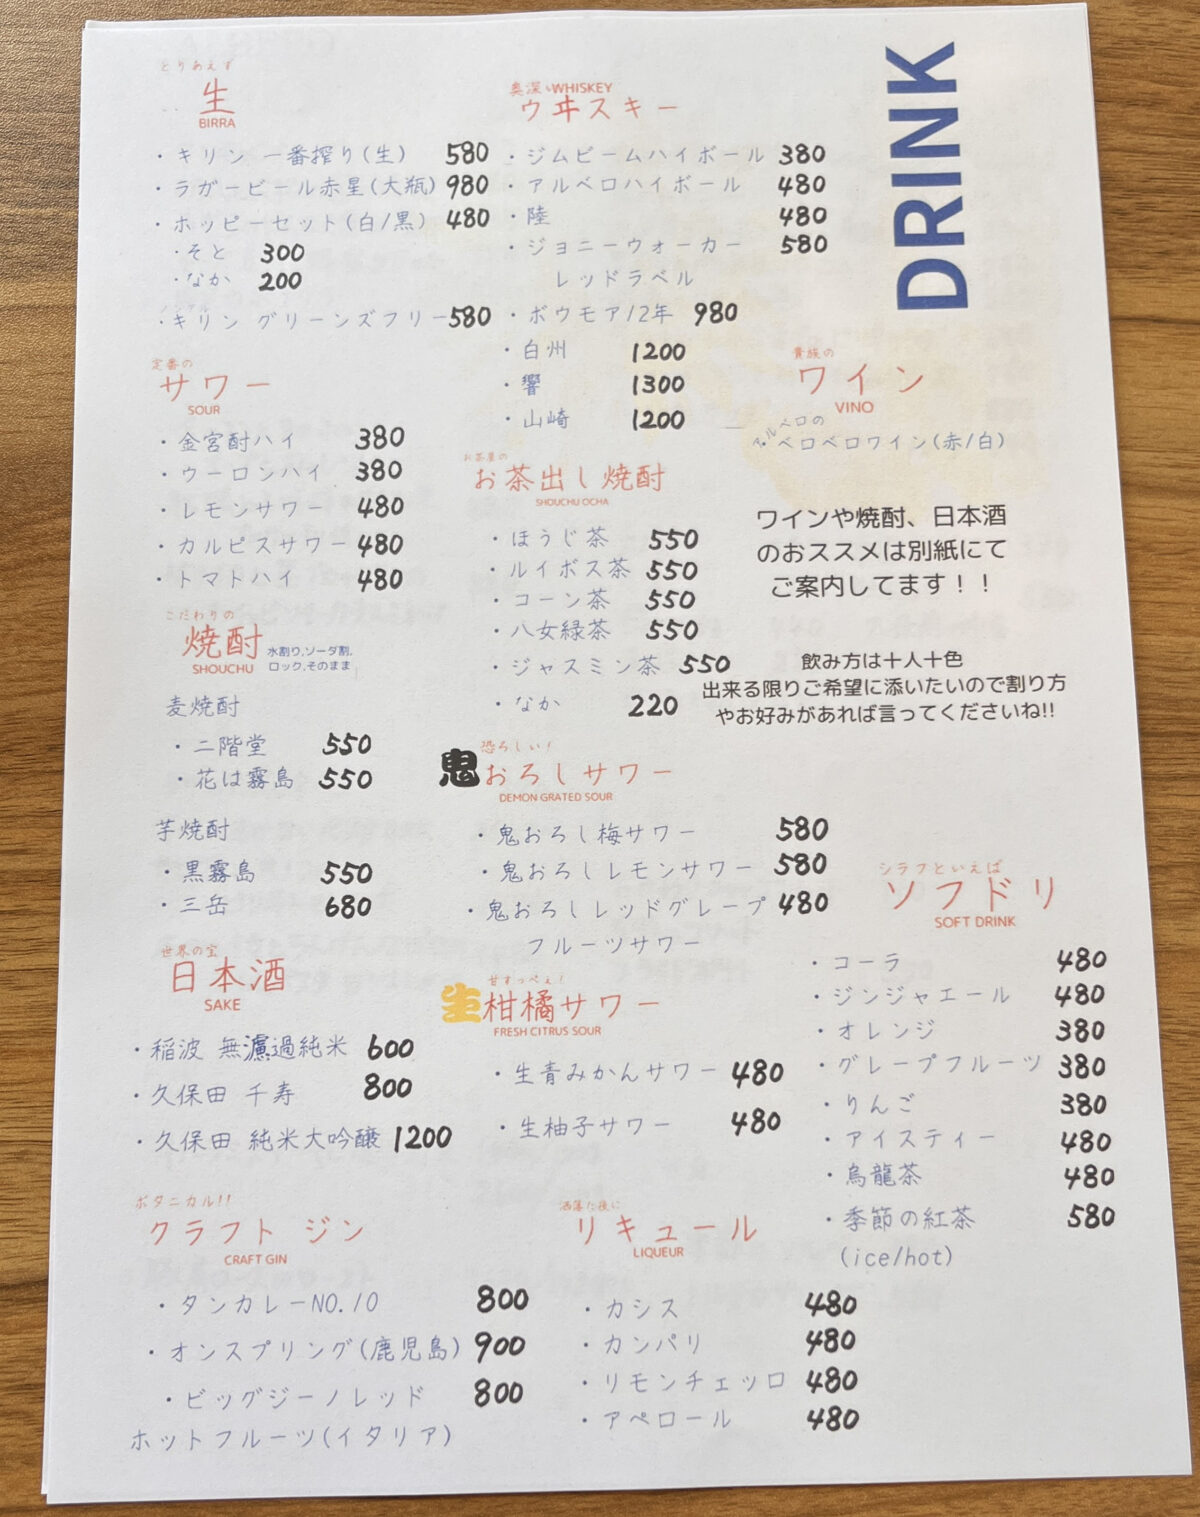 DRINK
とりあえず
生
BIRRA
・キリン 一番搾り(生) 580
・ラガービール赤星(大瓶) 980
・ホッピーセット(白/黒) 480
・そと 300
・なか 200
ノンアル
・キリン グリーンズフリー 580
定番の
サワー
SOUR
・金宮酎ハイ 380
・ウーロンハイ 380
・レモンサワー 480
・カルピスサワー 480
・トマトハイ 480
こだわりの
焼酎
SHOUCHU
水割り,ソーダ割,
ロック,そのまま
麦焼酎
・二階堂 550
・花は霧島 550
芋焼酎
・黒霧島 550
・三岳 680
世界の宝
日本酒
SAKE
・稲波 無濾過純米 600
・久保田 千寿 800
・久保田 純米大吟醸 1200
ボタニカル!!
クラフト ジン
CRAFT GIN
・タンカレーNO.10 800
・オンスプリング(鹿児島) 900
・ビッグジーノレッド 800
ホットフルーツ(イタリア)
奥深いWHISKEY
ウヰスキー
・ジムビームハイボール 380
・アルベロハイボール 480
・陸 480
・ジョニーウォーカー 580
レッドラベル
・ボウモア12年 980
・白州 1200
・響 1300
・山崎 1200
お茶屋の
お茶出し焼酎
SHOUCHU OCHA
・ほうじ茶 550
・ルイボス茶 550
・コーン茶 550
・八女緑茶 550
・ジャスミン茶 550
・なか 220
恐ろしい!
鬼おろしサワー
DEMON GRATED SOUR
・鬼おろし梅サワー 580
・鬼おろしレモンサワー 580
・鬼おろしレッドグレープ 480
フルーツサワー
甘すっぺぇ!
生柑橘サワー
FRESH CITRUS SOUR
・生青みかんサワー 480
・生柚子サワー 480
洒落た後に
リキュール
LIQUEUR
・カシス 480
・カンパリ 480
・リモンチェッロ 480
・アペロール 480
貴族の
ワイン
VINO
アルベロの
・ベロベロワイン(赤/白)
ワインや焼酎、日本酒
のおススメは別紙にて
ご案内してます！！
飲み方は十人十色
出来る限りご希望に添いたいので割り方
やお好みがあれば言ってくださいね!!
シラフといえば
ソフドリ
SOFT DRINK
・コーラ 480
・ジンジャエール 480
・オレンジ 380
・グレープフルーツ 380
・りんご 380
・アイスティー 480
・烏龍茶 480
・季節の紅茶 580
(ice/hot)